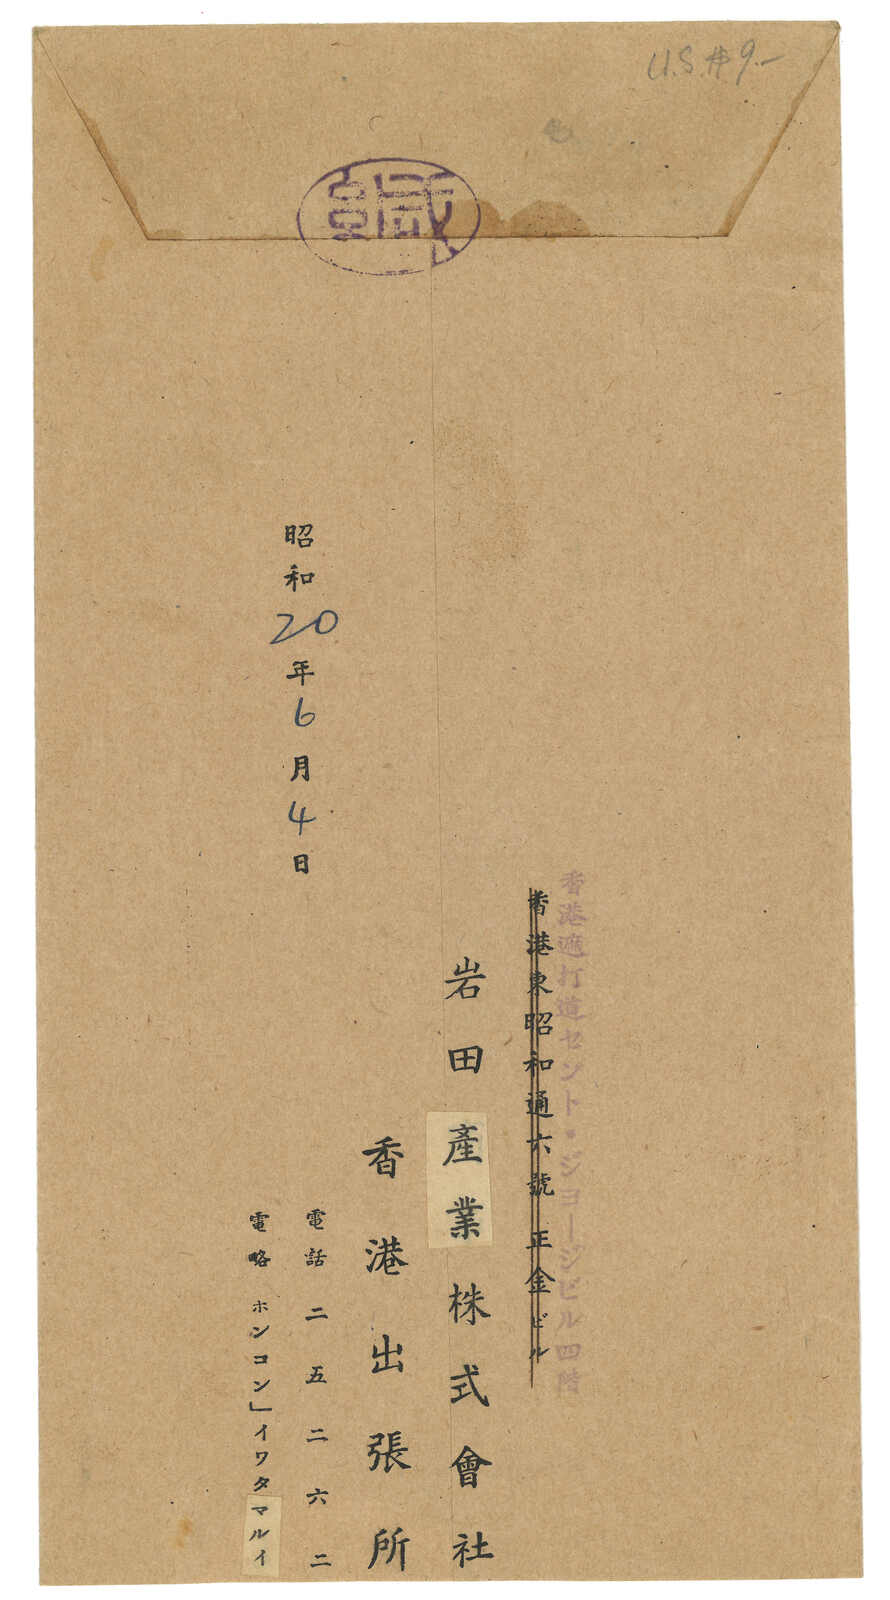 U.S.$9.-
香港遮打道セント・ジヨージビル四階
香港東昭和通六號 正金ビル
岩田產業株式會社
香港出張所
電話二五二六二
電略 ホンコン」イワタマルイ
昭和20年6月4日